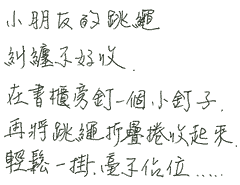 小朋友的跳繩
糾纏不好收.
在書櫃旁釘一個小釘子.
再將跳繩折疊捲收起來.
輕鬆一掛.毫不佔位.....